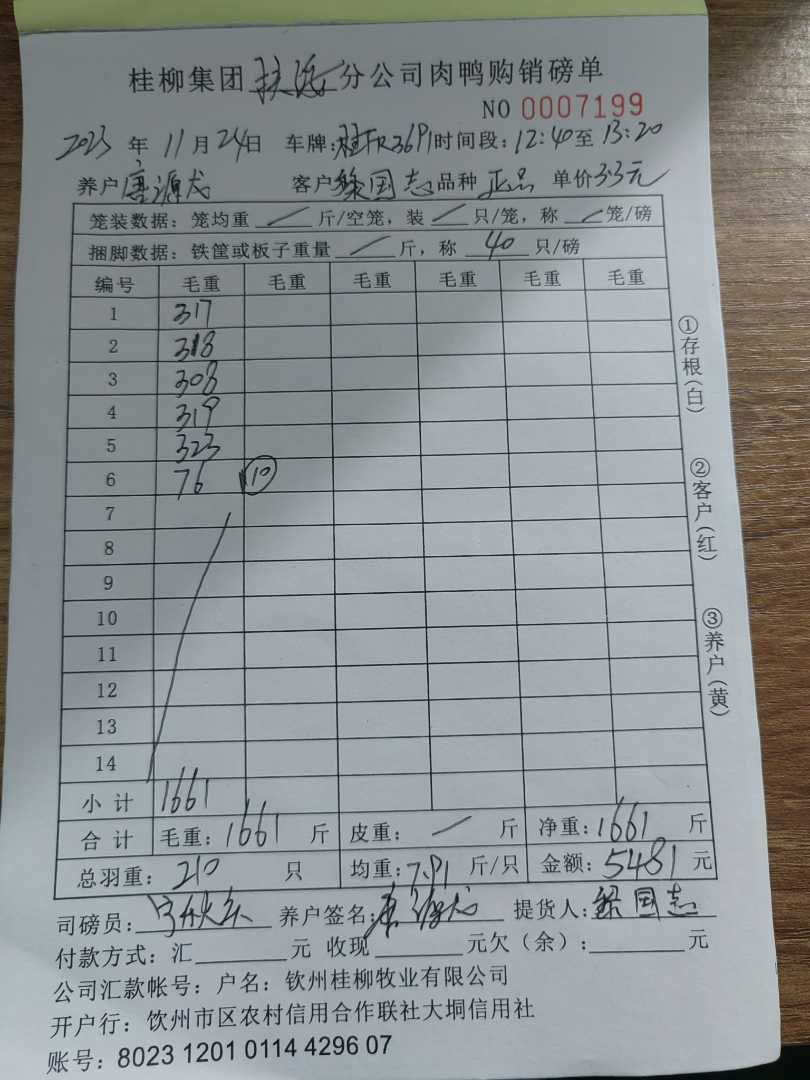 桂柳集团 分公司肉鸭购销磅单
NO 0007199
2023年11月24日 车牌:桂FR3691时间段:12:40至13:20
养户 唐源龙 客户黎国志品种正品 单价3.3元
笼装数据:笼均重 / 斤/空笼,装 / 只/笼,称 / 笼/磅
捆脚数据:铁筐或板子重量 / 斤,称 40 只/磅
编号 毛重 毛重 毛重 毛重 毛重 毛重
1 317
2 318
3 308
4 319
5 323
6 76 10
7
8
9
10
11
12
13
14
小计 1661
合计 毛重:1661斤 皮重:/斤 净重:1661斤
总羽重:210只 均重:7.91斤/只 金额:5481元
司磅员: 养户签名:唐源龙 提货人:黎国志
付款方式:汇 元 收现 元欠(余): 元
公司汇款帐号:户名:钦州桂柳牧业有限公司
开户行:钦州市区农村信用合作联社大垌信用社
账号:8023 1201 0114 4296 07
①存根(白)
②客户(红)
③养户(黄)